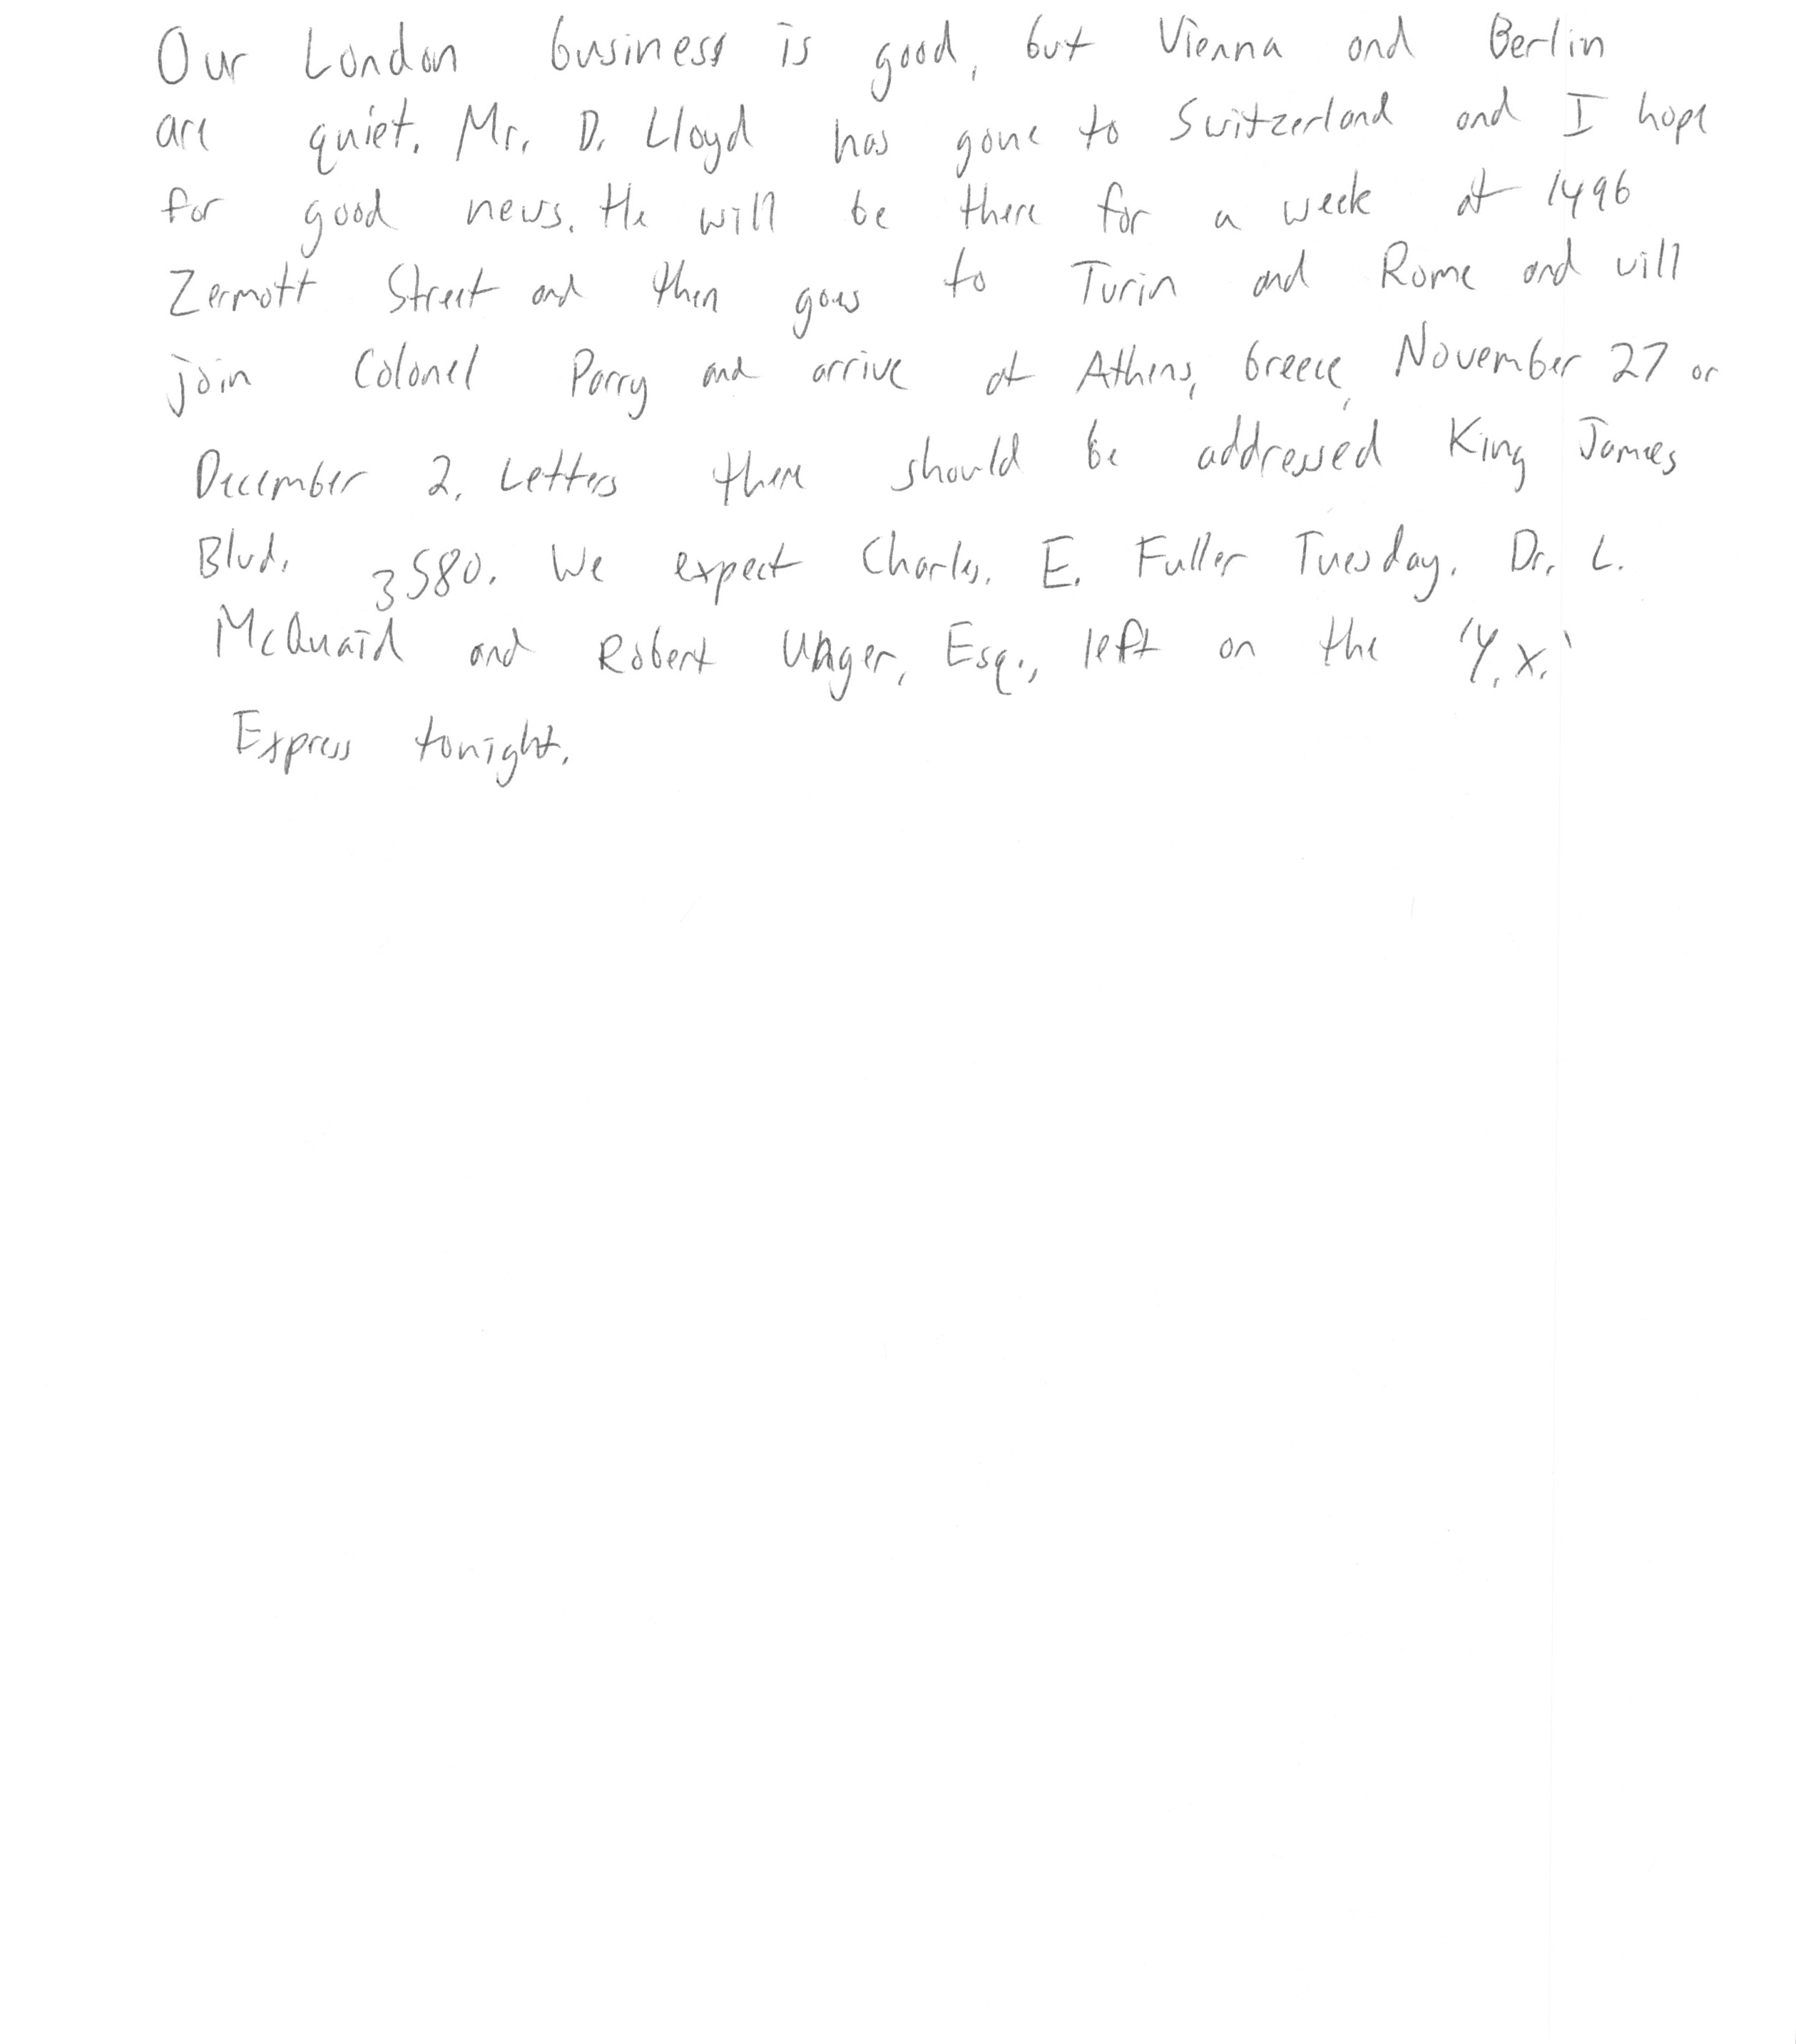 Our London business is good, but Vienna and Berlin
are quiet. Mr. D. Lloyd has gone to Switzerland and I hope
for good news. He will be there for a week at 1496
Zermott Street and then goes to Turin and Rome and will
join Colonel Parry and arrive at Athens, Greece, November 27 or
December 2. Letters there should be addressed King James
Blvd. 3580. We expect Charles. E. Fuller Tuesday. Dr. L.
McQuaid and Robert Unger, Esq., left on the 'Y.X.'
Express tonight.